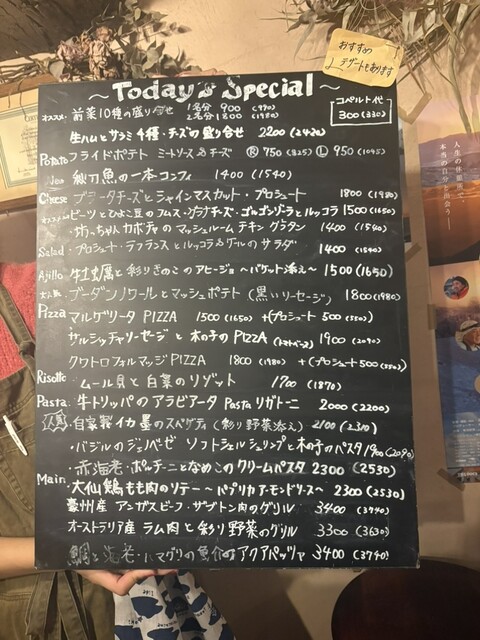 おすすめ
デザートもあります
~Today's Special~
コペルト代
300(330)
オススメ 前菜10種の盛り合せ 1名分 900 (990)
2名分 1800 (1980)
生ハムとサラミ4種・チーズの盛り合せ 2200 (2420)
Potato フライドポテト ミートソース&チーズ Ⓡ 750 (825) Ⓛ 950 (1045)
New 秋刀魚の一本コンフィ 1400 (1540)
Cheese ブラータチーズとシャインマスカット・プロシュート 1800 (1980)
オススメ ビーツとひよこ豆のフムス・ゴルゴンゾーラとルッコラ 1500 (1650)
・坊っちゃんカボチャのマッシュルームチキングラタン 1400 (1540)
Salad ・プロシュート・ラフランスとルッコラ&ケールのサラダ 1400 (1540)
Ajillo 牡蠣と彩りきのこのアヒージョ ~バケット添え~ 1500 (1650)
大人気 ブーダンノワールとマッシュポテト (黒いソーセージ) 1800 (1980)
Pizza マルゲリータ PIZZA 1500 (1650) +(プロシュート 500 (550)
サルシッチャソーセージと木の子のPIZZA (トマトベース) 1900 (2090)
クワトロフォルマッジ PIZZA 1800 (1980) +(プロシュート 500 (550)
Risotto ムール貝と白菜のリゾット 1700 (1870)
Pasta 牛トリッパのアラビアータ Pasta リガトーニ 2000 (2200)
人気 ・自家製イカ墨のスパゲティ (彩り野菜添え) 2100 (2310)
・バジルのジェノベーゼ ソフトシェルシュリンプと木の子のパスタ 1900 (2090)
・赤海老・ポルチーニとなめこのクリームパスタ 2300 (2530)
Main 大仙鶏もも肉のソテー ~パプリカアーモンドソース~ 2300 (2530)
豪州産 アンガスビーフ・サブトン肉のグリル 3400 (3740)
オーストラリア産 ラム肉と彩り野菜のグリル 3300 (3630)
鯛と海老・ハマグリの魚介のアクアパッツァ 3400 (3740)
人生の休憩所で、
本当の自分と出会う―